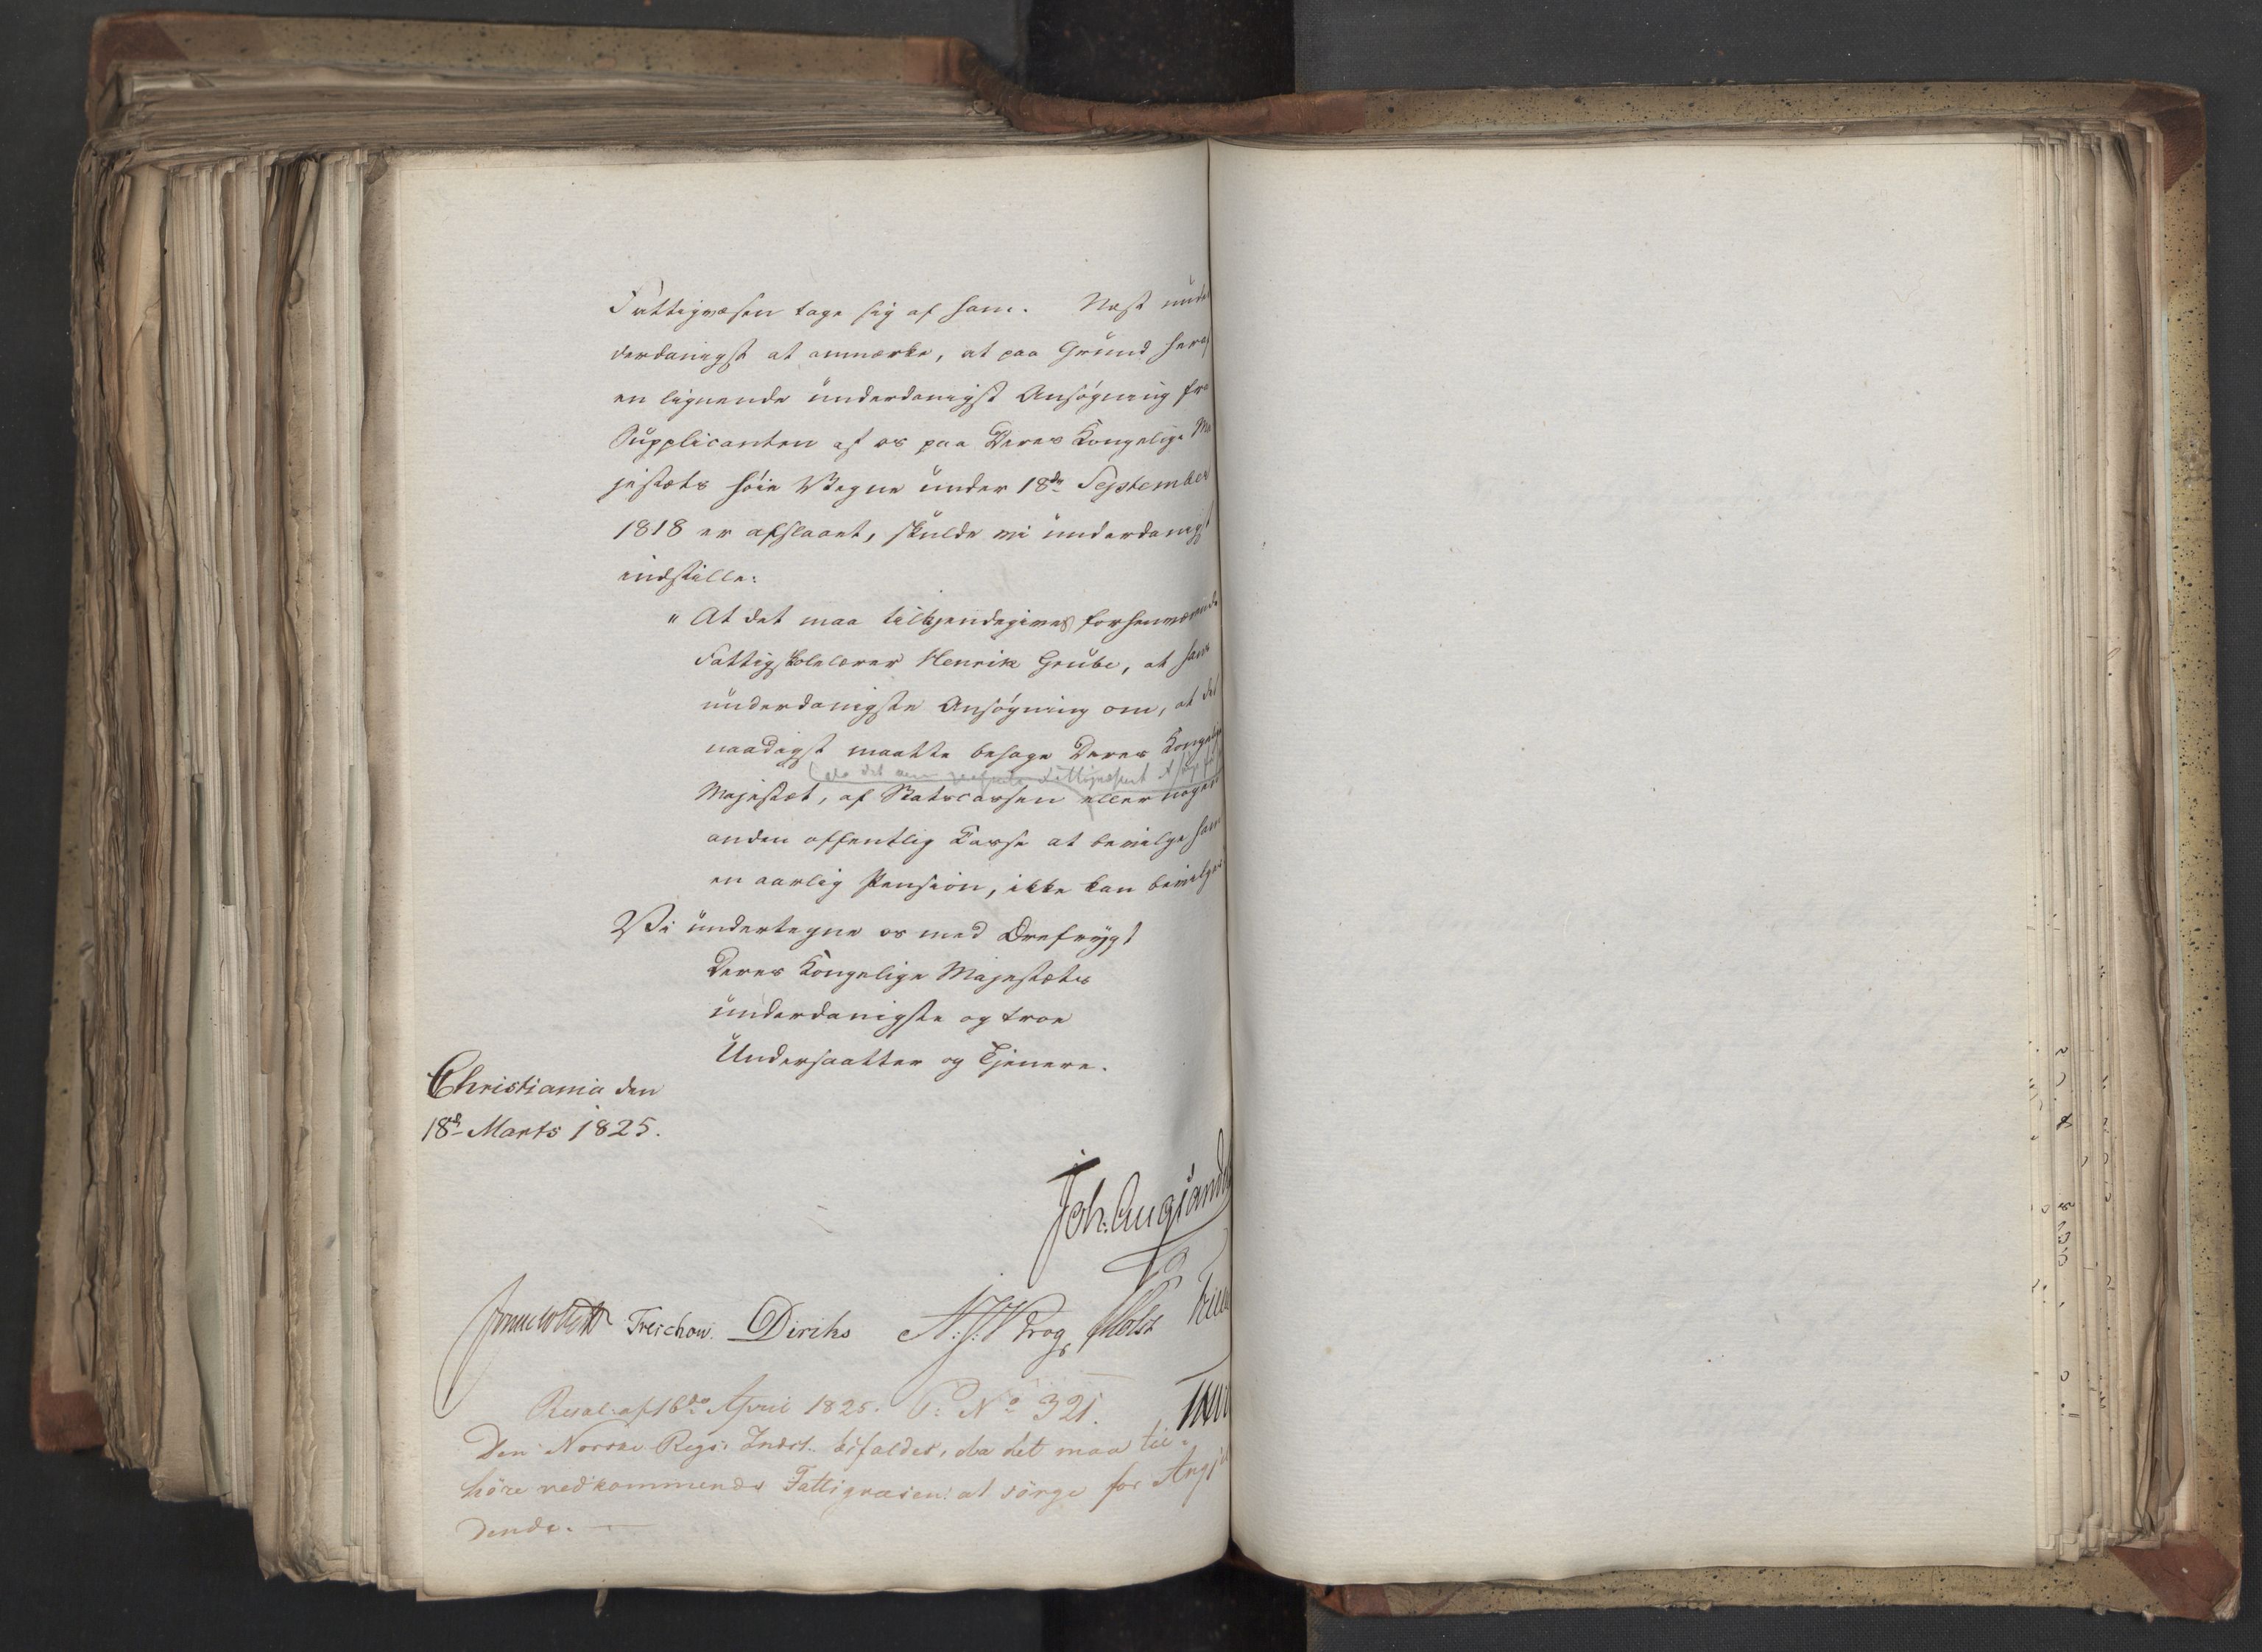 Fattigvæsen tage sig af ham. Næst
derdanigst at anmærke, at paa Grund heraf
en lignende underdanigst Ansøgning fra
Supplicanten af os paa Deres Kongelige Ma
jestæts høie Vegne under 18de September
1818 er afslaaet, skulde vi underdanigst
indstille:
" At det maa tilkjendegives forhenværende
Fattigskolelærer Henrik Grube, at hans
underdanigste Ansøgning om, at det
naadigst maatte behage Deres Kongelige
da det
Majestæt, af Statscassen eller nogen
anden offentlig Kasse at bevilge ham
en aarlig Pension, ikke kan bevilges
Vi undertegne os med Ærefrygt
Deres Kongelige Majestæts
underdanigste og troe
Undersaatter og Tjenere.
Christiania den
18de Marts 1825.
Joh: Aug Sandels
Treschow. Diriks N: J: Krog Holst
Resol: af 16de April 1825. P: No 321.
Den Norske Regs: Indst: bifaldes, da det maa til-
høre vedkommende Fattigvæsen at sørge for
dende.